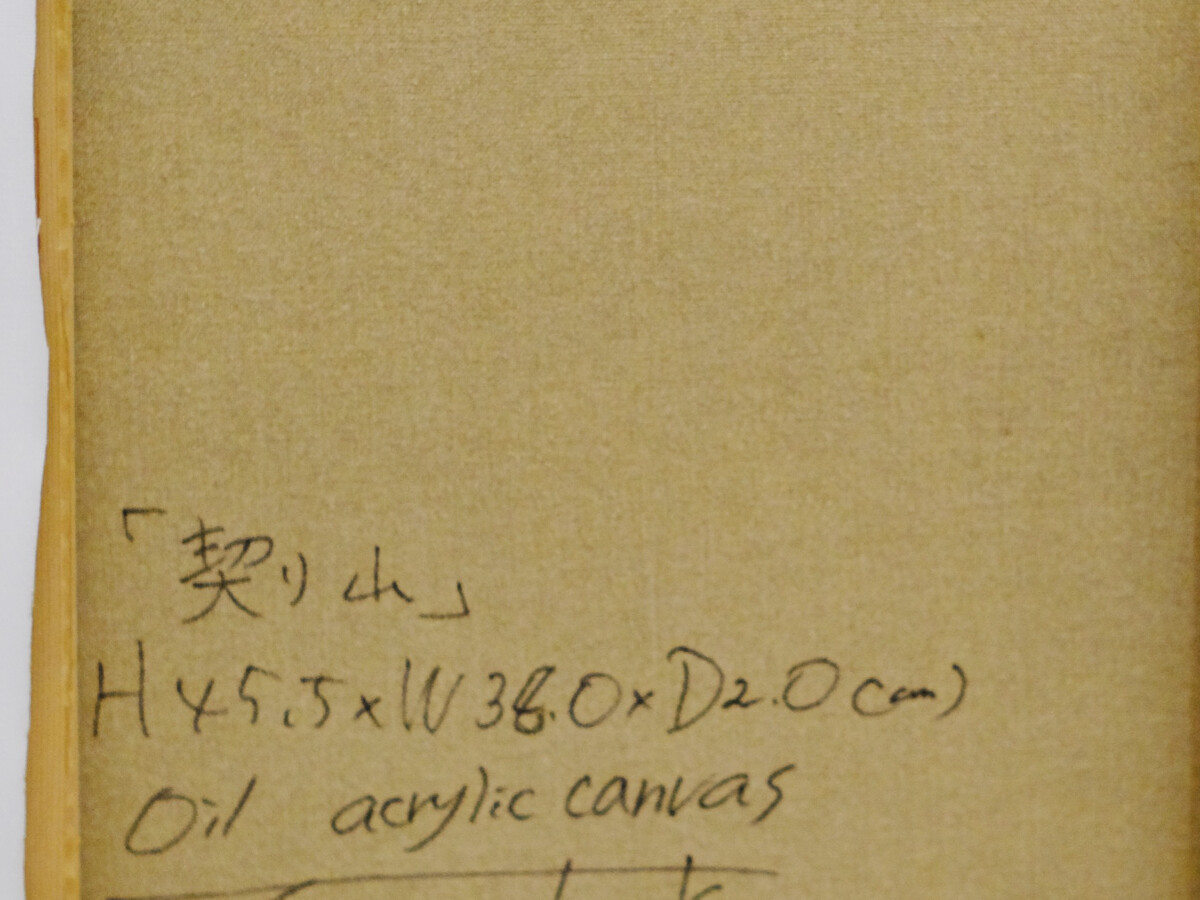 「契り山」
H45.5×W38.0×D2.0(cm)
Oil acrylic canvas